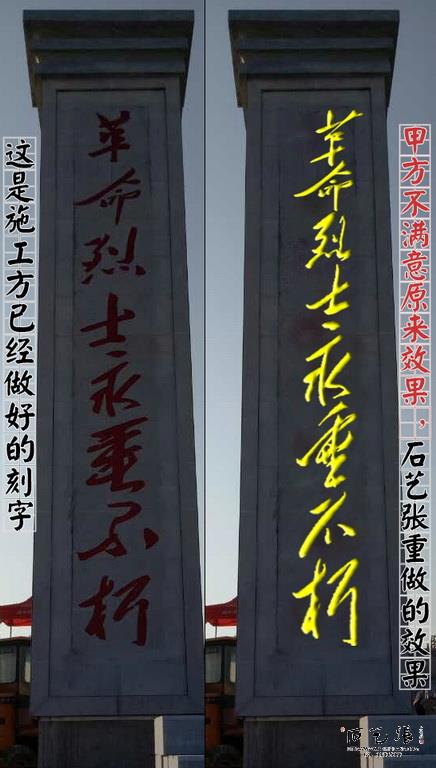 这是施工方已经做好的刻字
革命烈士永垂不朽
革命烈士永垂不朽
甲方不满意原来效果，石艺张重做的效果
石艺张